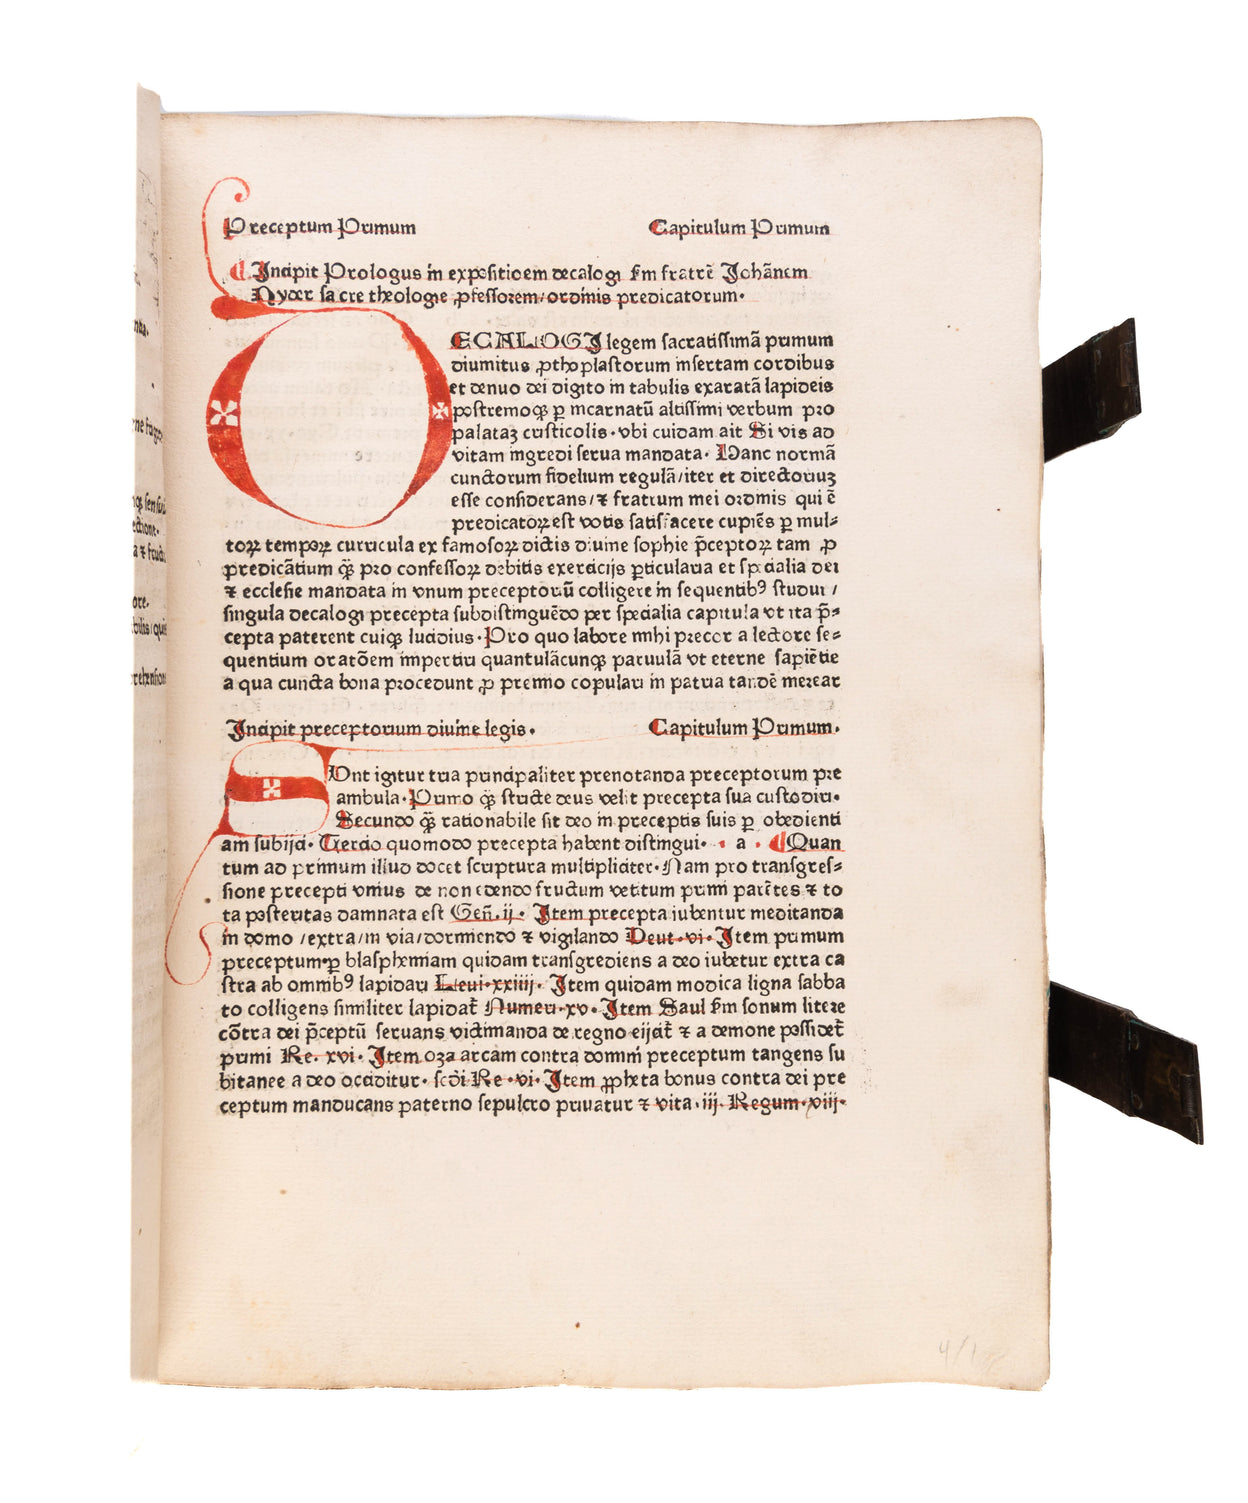 Preceptum Primum Capitulum Primum
Incipit Prologus in expositioem decalogi ẜm fratrē Johānem
Nyder sacre theologie ꝓfessorem/ordinis predicatorum.
DECALOGI legem sacratissimā primum
diuinitus ꝓthoplastorum insertam cordibus
et denuo dei digito in tabulis exaratā lapideis
postremoqꝫ ꝑ incarnatū altissimi verbum pro
palataꝫ cristicolis·vbi cuidam ait Si vis ad
vitam ingredi serua mandata· Hanc normā
cunctorum fidelium regulā/iter et directoriuꝫ
esse considerans/⁊ fratrum mei ordinis qui ē
predicatoꝝ est votis satisfacere cupiēs ꝑ mul⸗
toꝝ tempoꝝ curricula ex famosoꝝ dictis diuine sophie p̄ceptoꝝ tam ꝓ
predicātium qꝫ pro confessoꝝ debitis exercicijs ꝑticularia et specialia dei
⁊ ecclesie mandata in vnum preceptoriū colligere in sequentibꝰ studui /
singula decalogi precepta subdistinguēdo per specialia capitula vt ita p̄⸗
cepta paterent cuiqꝫ lucidius·Pro quo labore mihi precor a lectore se⸗
quentium oratōem impertiri quantulācunqꝫ paruulā vt eterne sapiētie
a qua cuncta bona procedunt ꝓ premio copulari in patria tandē merear
Incipit preceptorium diuine legis. Capitulum Primum.
SUnt igitur tria principaliter prenotanda preceptorum pre
ambula·Primo qꝫ stricte deus velit precepta sua custodiri·
Secundo qꝫ rationabile sit deo in preceptis suis ꝑ obedienti
am subijci· Tercio quomodo precepta habent distingui· · a · Quan
tum ad primum illud docet scriptura multipliciter·Nam pro transgres⸗
sione precepti vnius de non edendo fructum vetitum primi parētes ⁊ to
ta posteritas damnata est Geñ.ij· Item precepta iubentur meditanda
in domo /extra/in via/dormiendo ⁊ vigilando Deut·vi· Item primum
preceptum·ꝑ blasphemiam quidam transgrediens a deo iubetur extra ca
stra ab omnibꝰ lapidari Leui·xxiiij· Item quidam modica ligna sabba
to colligens similiter lapidat̄ Numeri·xv· Item Saul ẜm sonum litere
cōtra dei p̄ceptū seruans victimanda de regno eijcit̄ ⁊ a demone possidet̄
primi Re. xvi· Item oza arcam contra domini preceptum tangens su
bitanee a deo occiditur· scd̄i Re·vi· Item ꝓpheta bonus contra dei pre
ceptum manducans paterno sepulcro priuatur ⁊ vita·iij· Regum·xiij·
4/1